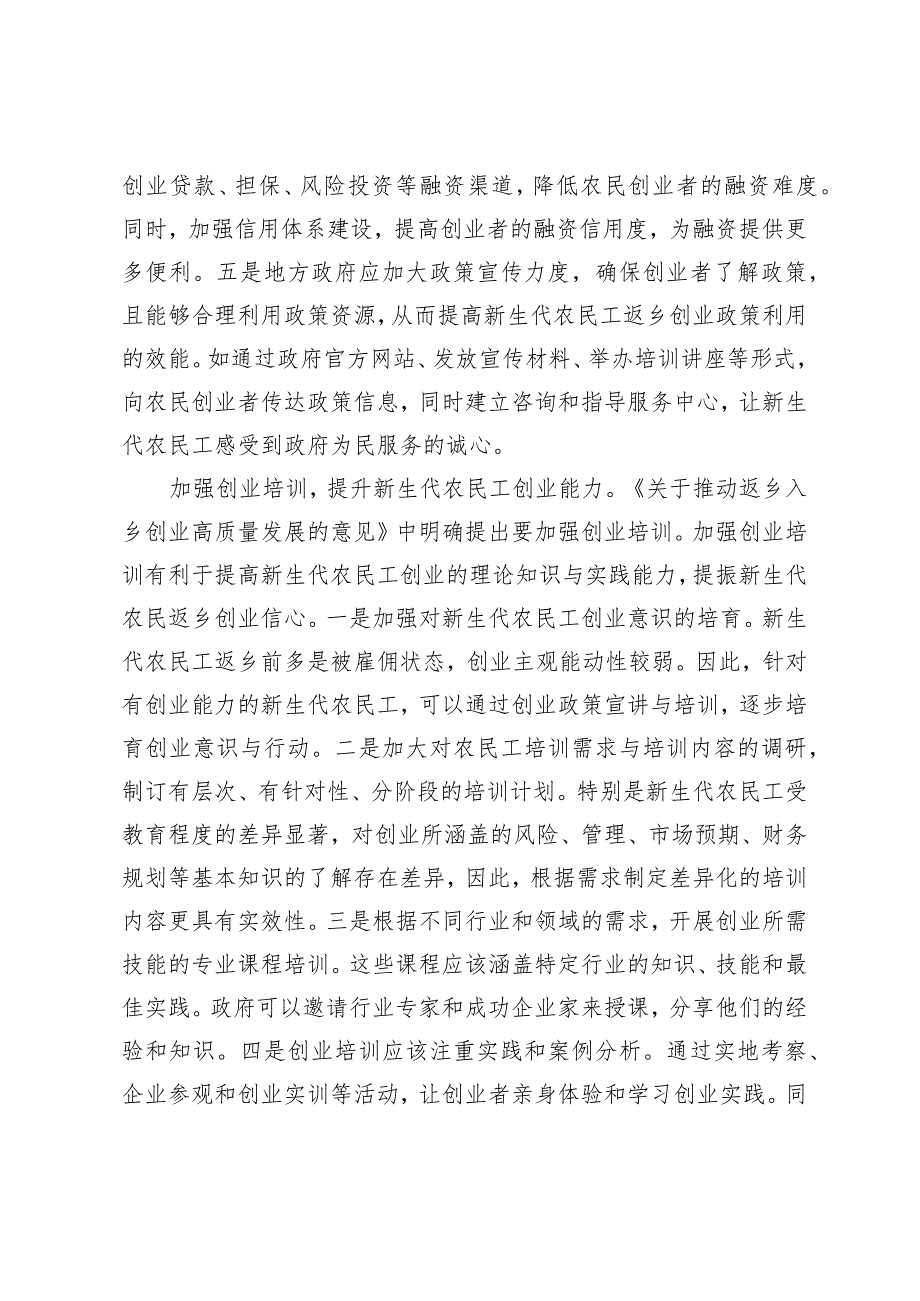 创业贷款、担保、风险投资等融资渠道，降低农民创业者的融资难度。
同时，加强信用体系建设，提高创业者的融资信用度，为融资提供更
多便利。五是地方政府应加大政策宣传力度，确保创业者了解政策，
且能够合理利用政策资源，从而提高新生代农民工返乡创业政策利用
的效能。如通过政府官方网站、发放宣传材料、举办培训讲座等形式，
向农民创业者传达政策信息，同时建立咨询和指导服务中心，让新生
代农民工感受到政府为民服务的诚心。
加强创业培训，提升新生代农民工创业能力。《关于推动返乡入
乡创业高质量发展的意见》中明确提出要加强创业培训。加强创业培
训有利于提高新生代农民工创业的理论知识与实践能力，提振新生代
农民返乡创业信心。一是加强对新生代农民工创业意识的培育。新生
代农民工返乡前多是被雇佣状态，创业主观能动性较弱。因此，针对
有创业能力的新生代农民工，可以通过创业政策宣讲与培训，逐步培
育创业意识与行动。二是加大对农民工培训需求与培训内容的调研，
制订有层次、有针对性、分阶段的培训计划。特别是新生代农民工受
教育程度的差异显著，对创业所涵盖的风险、管理、市场预期、财务
规划等基本知识的了解存在差异，因此，根据需求制定差异化的培训
内容更具有实效性。三是根据不同行业和领域的需求，开展创业所需
技能的专业课程培训。这些课程应该涵盖特定行业的知识、技能和最
佳实践。政府可以邀请行业专家和成功企业家来授课，分享他们的经
验和知识。四是创业培训应该注重实践和案例分析。通过实地考察、
企业参观和创业实训等活动，让创业者亲身体验和学习创业实践。同